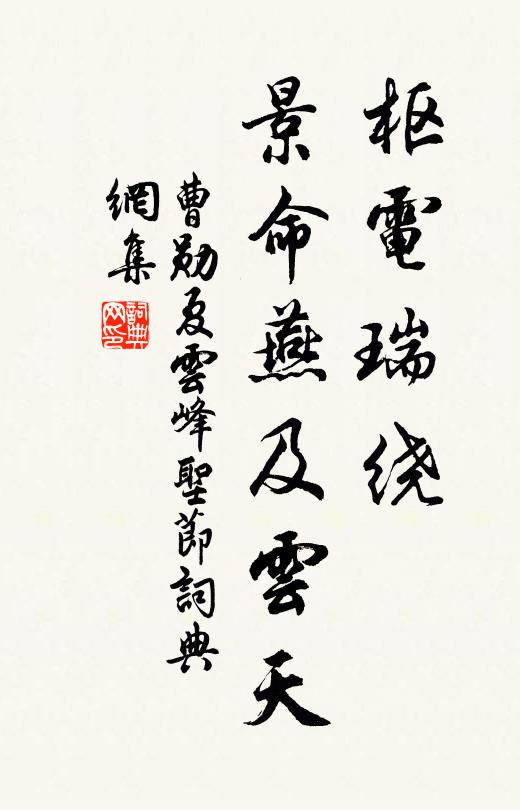 枢電瑞绕
景命燕及雲天
曹勛夏雲峰聖節詞典
網集
詞典
网印